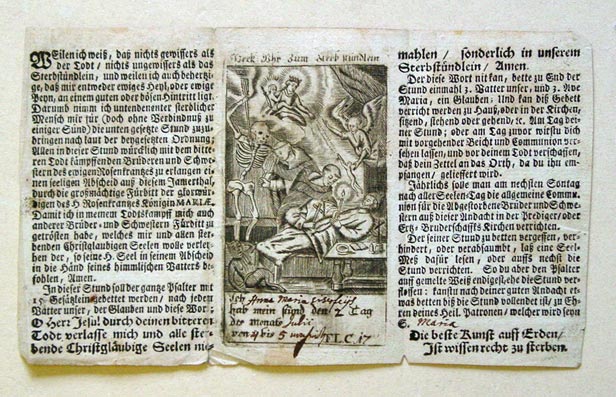 WEilen ich weiß, daß nichts gewissers als
der Todt / nichts ungewissers als das
Sterbstündlein, und weilen ich auch behertzi-
ge, daß mir entweder ewiges Heyl, oder ewige
Peyn, an einem guten oder bösen Hintritt ligt.
Darumb nium ich untenbenenter sterblicher
Mensch mir für (doch ohne Verbindnuß zu
einiger Sünd) die unten gesetzte Stund zuzu-
bringen nach laut der beygesetzten Ordnung;
Allen in dieser Stund würcklich mit dem bitte-
ren Todt kämpffenden Brüderen und Schwe-
stern des ewigen Rosenkrantzes zu erlangen ei-
nen seeligen Abscheid auß diesem Jamerthal,
durch die großmächtige Fürbitt der glorwür-
digen des H Rosenkrantzes Königin MARIÆ.
Damit ich in meinem Todtskampff mich auch
anderer Brüder- und Schwestern Fürbitt zu
getrösten habe, welches mir und allen ster-
benden Christglaubigen Seelen wolle verlei-
hen der, so seine H. Seel in seinem Abscheid
in die Händ seines himmlischen Vatters be-
fohlen, Amen.
In dieser Stund soll der gantze Psalter mit
15 Gesätzlein gebettet werden / nach jedem
Vatter unser, der Glauben und diese Wort:
O Herr Jesu! durch deinen bitteren
Todt verlasse mich und alle ster-
bende Christglaubige Seelen nie-
Weck Uhr Zum Sterb stündlein
Ich Anna Maria
hab mein stund den 2 Tag
des monats Julii
von 4 bis 5 uhr
F.L.C. 17
mahlen / sonderlich in unserem
Sterbstündlein / Amen.
Der diese Wort nit kan, bette zu End der
Stund einmahl 3 Vatter unser, und 3 Ave
Maria, ein Glauben: Und kan diß Gebett
verricht werden zu Hauß, oder in der Kirchen,
sitzend, stehend oder gehend, &c. Am Tag dei-
ner Stund; oder am Tag zuvor wirstu dich
mit vorgehender Beicht und Communion ver-
sehen lassen, und vor deinem Todt verschaffen,
daß dein Zettel an das Orth, da du ihn em-
pfangen / geliefert wird.
Jährlichs solle man am nechsten Sontag
nach aller Seelen-Tag die allgemeine Commu-
nion für die Abgestorbene Brüder und Schwe-
stern auß dieser Andacht in der Prediger / oder
Ertz-Bruderschaffts Kirchen verrichten.
Der seiner Stund zu betten vergessen, ver-
hindert, oder verabsaumbt, laß eine Seel-
Meß dafür lesen, oder auffs nechst die
Stund verrichten. So du aber den Psalter
auff gemelte Weiß endigest, ehe die Stund ver-
flossen: kanstu nach deiner guten Andacht et-
was betten biß die Stund vollendet ist / zu Eh-
ren deines Heil. Patronen / welcher wird seyn
S. Maria
Die beste Kunst auff Erden /
Ist wissen recht zu sterben.